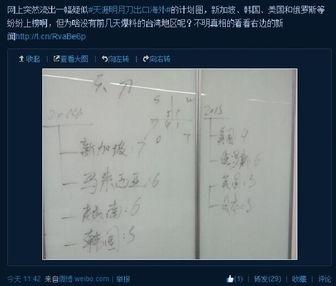 网上突然流出一幅疑似#天涯明月刀出口海外#的计划图，新加坡、韩国、美国和俄罗斯等
纷纷上榜啊，但为啥没有前几天爆料的台湾地区呢？不明真相的看看右边的新
闻http://t.cn/RvaBe6p
收起 查看大图 向左转 向右转
天刀
新加坡：7
马来西亚：6
越南：6
韩国：5
2015
美国
俄罗斯 6
英国：5
今天 11:42 来自微博 weibo.com | 举报
(1) | 转发(29) | 收藏 | 评论